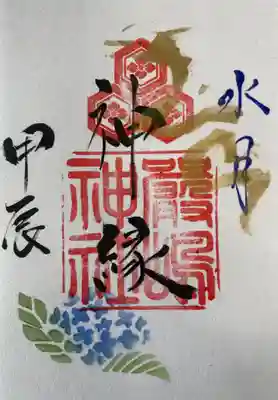 水月
神縁
神社
甲辰